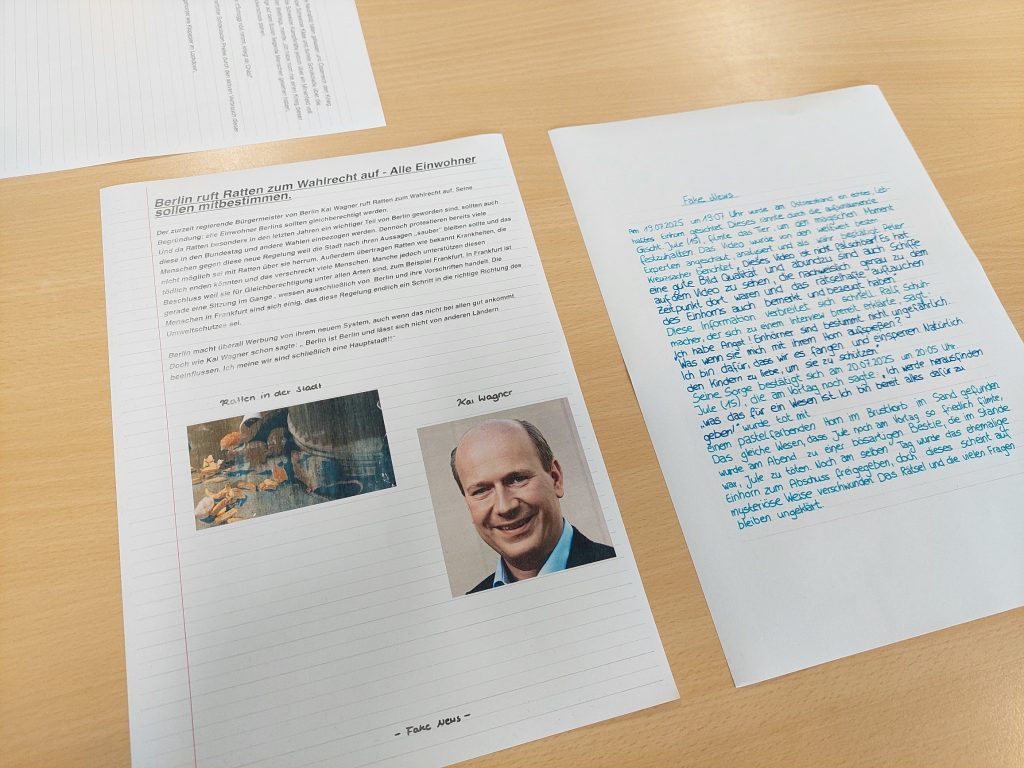 Berlin ruft Ratten zum Wahlrecht auf - Alle Einwohner
sollen mitbestimmen.
Der zurzeit regierende Bürgermeister von Berlin Kai Wagner ruft Ratten zum Wahlrecht auf. Seine
Begründung: alle Einwohner Berlins sollten gleichberechtigt werden.
Und da Ratten besonders in den letzten Jahren ein wichtiger Teil von Berlin geworden sind, sollten auch
diese in den Bundestag und andere Wahlen einbezogen werden. Dennoch protestieren bereits viele
Menschen gegen diese neue Regelung weil die Stadt nach ihren Aussagen „sauber" bleiben sollte und das
nicht möglich sei mit Ratten über sie herrum. Außerdem übertragen Ratten wie bekannt Krankheiten, die
tödlich enden könnten und das verschreckt viele Menschen. Manche jedoch unterstützen diesen
Beschluss weil sie für Gleichberechtigung unter allen Arten sind, zum Beispiel Frankfurt. In Frankfurt ist
gerade eine Sitzung im Gange , wessen ausschließlich von Berlin und ihre Vorschriften handelt. Die
Menschen in Frankfurt sind sich einig, das diese Regelung endlich ein Schritt in die richtige Richtung des
Umweltschutzes sei.
Berlin macht überall Werbung von ihrem neuem System, auch wenn das nicht bei allen gut ankommt.
Doch wie Kai Wagner schon sagte: „ Berlin ist Berlin und lässt sich nicht von anderen Ländern
beeinflussen. Ich meine wir sind schließlich eine Hauptstadt!!"
Ratten in der Stadt
Kai Wagner
- Fake News -
Fake News
Am 19.07.2025 um 19:07 Uhr wurde am Ostseestrand ein echtes, leb-
haftes Einhorn gesichtet. Dieses rannte durch die aufschäumende
Gischt. Jule (15), filmte das Tier, um den magischen Moment
festzuhalten. Das Video wurde von den weltweit besten
Experten angeschaut, analysiert und als wahr bestätigt. Peter
Kreuzacher berichtet: „Dieses Video ist nicht fälschbar! Es hat
eine gute Bild Qualität und ab und zu sind auch Schiffe
auf dem Video zu sehen, die nachweislich genau zu dem
Zeitpunkt dort waren und das rätselhafte auftauchen
des Einhorns auch bemerkt und bezeugt haben."
Diese Information verbreitet sich schnell. Ralf Schuh-
macher, der sich zu einem Interview bereit erklärte, sagt:
„Ich habe Angst! Einhörner sind bestimmt nicht ungefährlich.
Was wenn sie mich mit ihrem Horn aufspießen?
Ich bin dafür, dass wir es fangen und einsperren. Natürlich
den Kindern zu liebe, um sie zu schützen."
Seine Sorge bestätigt sich am 20.07.2025 um 20:05 Uhr.
Jule (15), die am Vortag noch sagte, „Ich werde herausfinden
was das für ein Wesen ist. Ich bin bereit alles dafür zu
geben!" wurde tot mit
einem pastellfarbenden Horn im Brustkorb im Sand gefunden
Das gleiche Wesen, dass Jule noch am Vortag so friedlich filmte,
wurde am Abend zu einer bösartigen Bestie, die im Stande
war, Jule zu töten. Noch am selben Tag wurde das ehemalige
Einhorn zum Abschuss freigegeben, doch dieses scheint auf
mysteriöse Weise verschwunden. Das Rätsel und die vielen Fragen
bleiben ungeklärt.